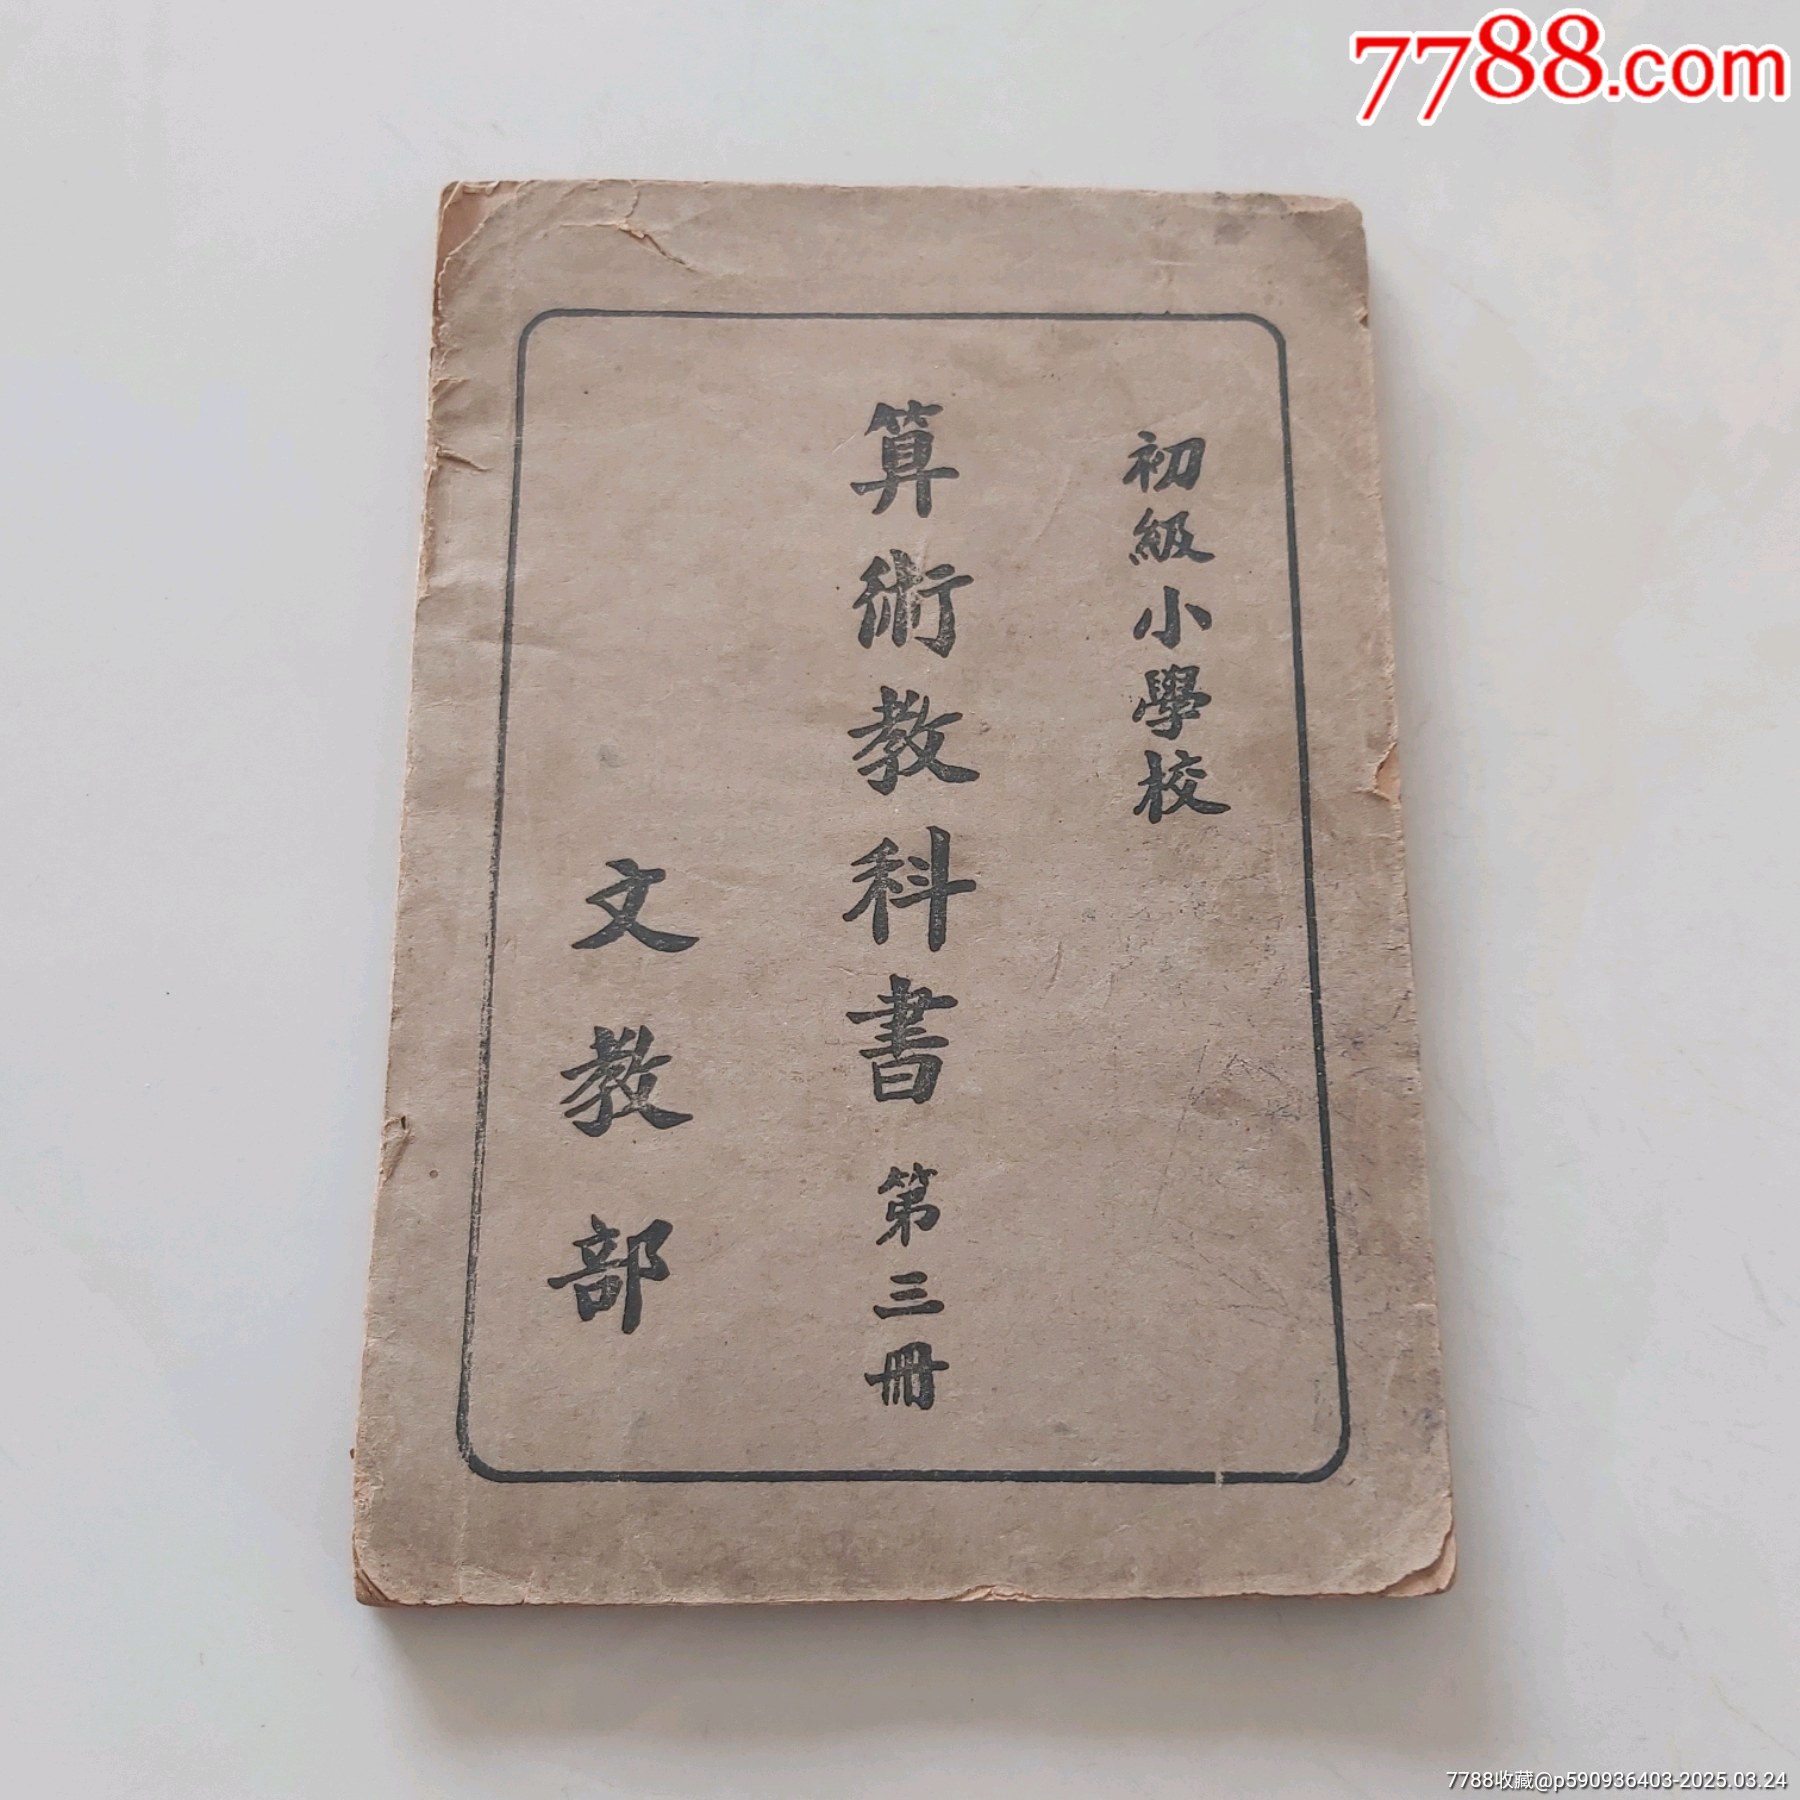 7788.com
初級小學校
算術教科書 第三冊
文教部
7788收藏@p590936403-2025.03.24